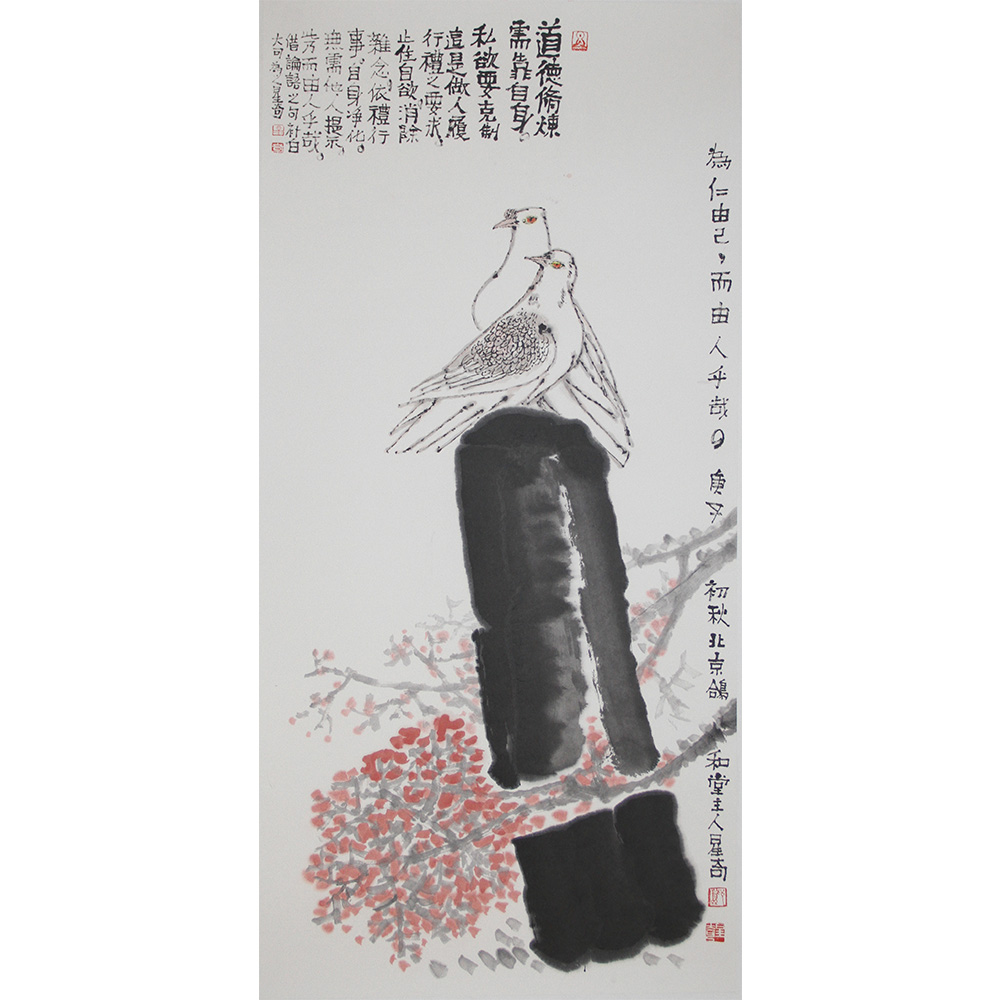 道德脩煉
需靠自身。
私欲要克制
這是做人履
行禮之要求。
止住自欲，消除
雜念，依禮行
事，自身净化。
無需他人提示，
而由人乎哉。
借論語之句補白
為仁由己，而由人乎哉。庚子 初秋北京鴿 和堂主人星奇